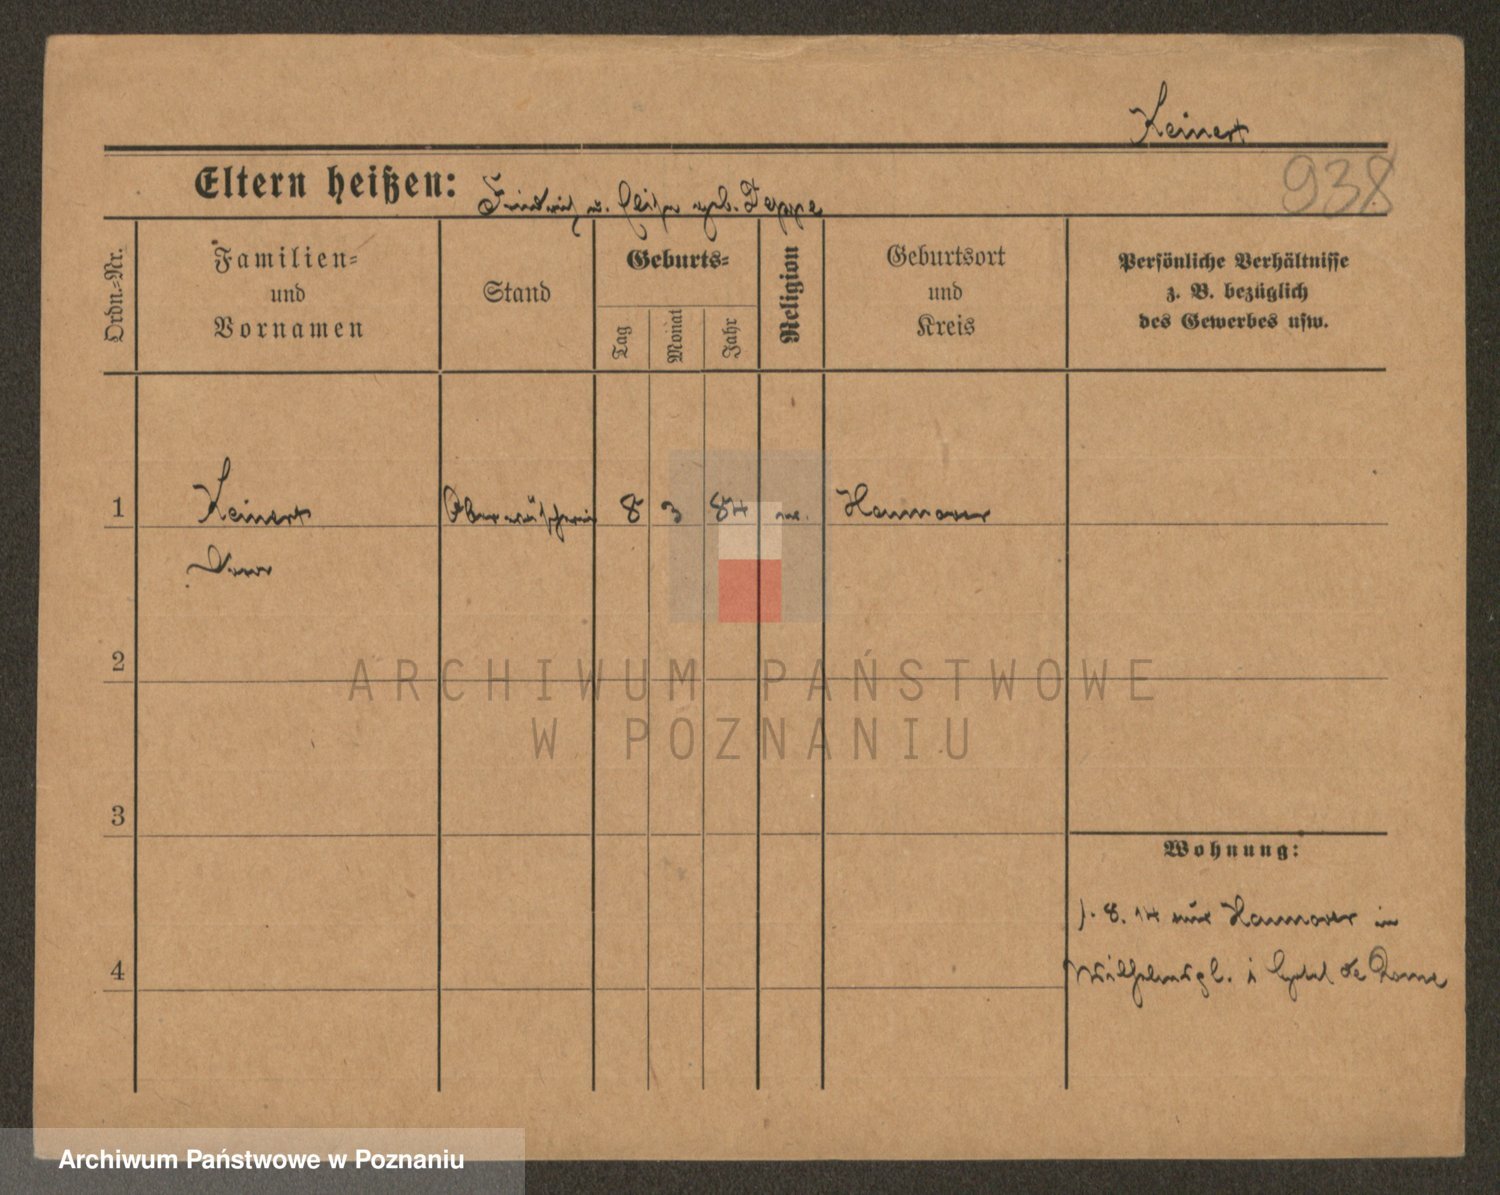 Keinert
938
Eltern heißen: Friedrich u. geb. Deppe
Ordn.=Nr.
Familien=
und
Vornamen
Stand
Geburts=
Tag
Monat
Jahr
Religion
Geburtsort
und
Kreis
Persönliche Verhältnisse
z. B. bezüglich
des Gewerbes usw.
1 Keinert 8 3 84 ev. Hannover
2
ARCHIWUM PAŃSTWOWE
W POZNANIU
3
Wohnung:
1. 8. 14 aus Hannover in
4
Wilhelmspl. 1 Hotel de Rome
Archiwum Państwowe w Poznaniu